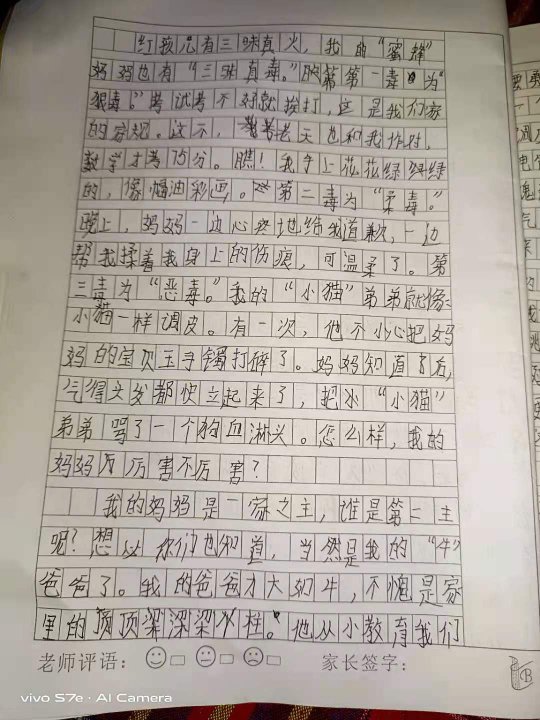 红孩儿有三昧真火，我的“蜜蜂”
妈妈也有“三昧真毒。”第一毒为“
狠毒。”考试考不好就挨打，这是我们家
的家规。这不，老天也和我作对，
数学才考75分。瞧！我手上花花绿绿绿
的，像幅油彩画。第二毒为“柔毒。”
晚上，妈妈一边心疼地给我道歉，一边
帮我揉着我身上的伤痕，可温柔了。第
三毒为“恶毒。”我的“小猫”弟弟就像
小猫一样调皮。有一次，他不小心把妈
妈的宝贝玉手镯打碎了。妈妈知道了后，
气得头发都快立起来了，把小“小猫”
弟弟骂了一个狗血淋头。怎么样，我的
妈妈厉害不厉害？
我的妈妈是一家之主，谁是第二主
呢？想以你们也知道，当然是我的“牛”
爸爸了。我的爸爸才大如牛，不愧是家
里的顶梁柱。他从小教育我们
老师评语： 家长签字：
B
vivo S7e · AI Camera